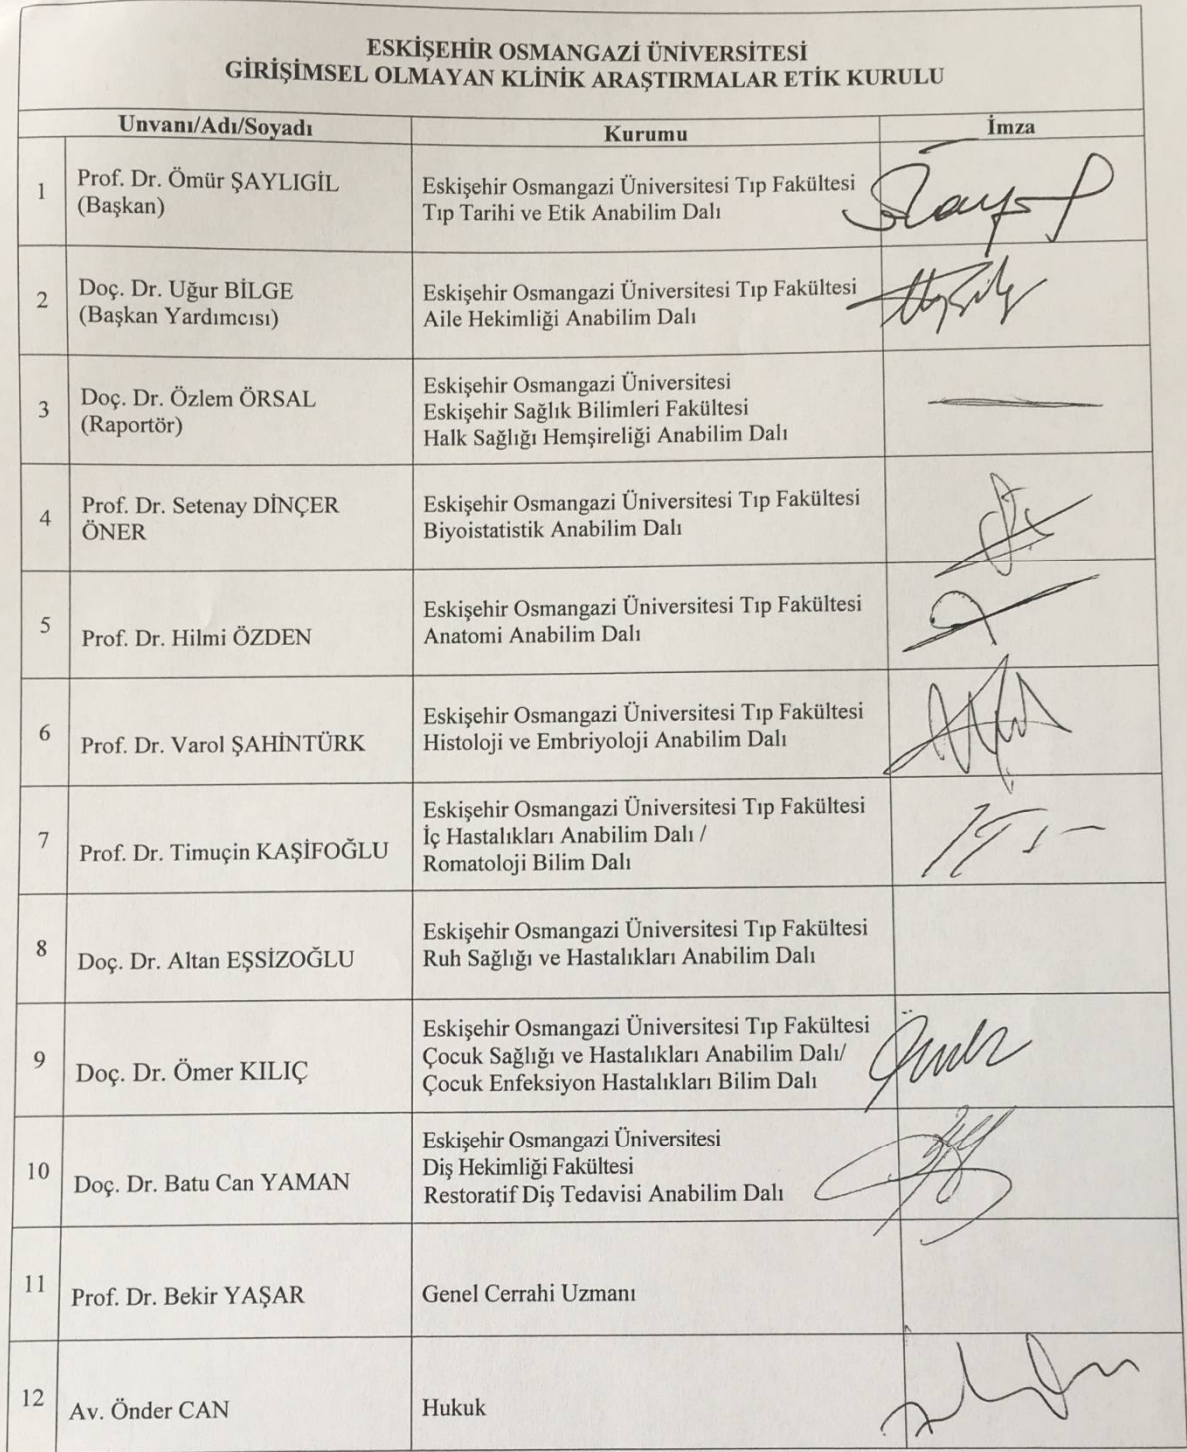 ESKİŞEHİR OSMANGAZİ ÜNİVERSİTESİ
GİRİŞİMSEL OLMAYAN KLİNİK ARAŞTIRMALAR ETİK KURULU
Unvanı/Adı/Soyadı Kurumu İmza
1 Prof. Dr. Ömür ŞAYLIGİL
(Başkan)
Eskişehir Osmangazi Üniversitesi Tıp Fakültesi
Tıp Tarihi ve Etik Anabilim Dalı
2 Doç. Dr. Uğur BİLGE
(Başkan Yardımcısı)
Eskişehir Osmangazi Üniversitesi Tıp Fakültesi
Aile Hekimliği Anabilim Dalı
3 Doç. Dr. Özlem ÖRSAL
(Raportör)
Eskişehir Osmangazi Üniversitesi
Eskişehir Sağlık Bilimleri Fakültesi
Halk Sağlığı Hemşireliği Anabilim Dalı
4 Prof. Dr. Setenay DİNÇER
ÖNER
Eskişehir Osmangazi Üniversitesi Tıp Fakültesi
Biyoistatistik Anabilim Dalı
5 Prof. Dr. Hilmi ÖZDEN
Eskişehir Osmangazi Üniversitesi Tıp Fakültesi
Anatomi Anabilim Dalı
6 Prof. Dr. Varol ŞAHİNTÜRK
Eskişehir Osmangazi Üniversitesi Tıp Fakültesi
Histoloji ve Embriyoloji Anabilim Dalı
7 Prof. Dr. Timuçin KAŞİFOĞLU
Eskişehir Osmangazi Üniversitesi Tıp Fakültesi
İç Hastalıkları Anabilim Dalı /
Romatoloji Bilim Dalı
8 Doç. Dr. Altan EŞSİZOĞLU
Eskişehir Osmangazi Üniversitesi Tıp Fakültesi
Ruh Sağlığı ve Hastalıkları Anabilim Dalı
9 Doç. Dr. Ömer KILIÇ
Eskişehir Osmangazi Üniversitesi Tıp Fakültesi
Çocuk Sağlığı ve Hastalıkları Anabilim Dalı/
Çocuk Enfeksiyon Hastalıkları Bilim Dalı
10 Doç. Dr. Batu Can YAMAN
Eskişehir Osmangazi Üniversitesi
Diş Hekimliği Fakültesi
Restoratif Diş Tedavisi Anabilim Dalı
11 Prof. Dr. Bekir YAŞAR
Genel Cerrahi Uzmanı
12 Av. Önder CAN
Hukuk